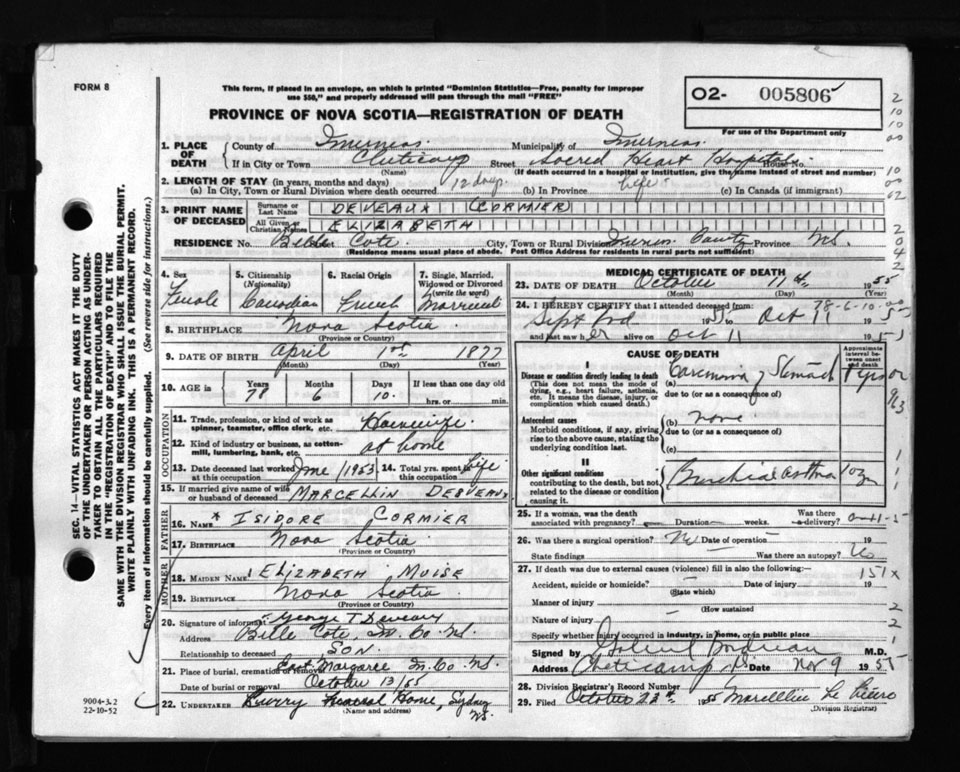 FORM 8
This form, if placed in an envelope, on which is printed "Dominion Statistics—Free, penalty for improper
use $50," and properly addressed will pass through the mail "FREE"
PROVINCE OF NOVA SCOTIA—REGISTRATION OF DEATH
O2- 005806
For use of the Department only
1. PLACE OF DEATH
County of Inverness Municipality of Inverness
If in City or Town Cheticamp Street Sacred Heart Hospital House No.
(Name) (If death occurred in a hospital or institution, give the name instead of street and number)
2. LENGTH OF STAY (in years, months and days)
(a) In City, Town or Rural Division where death occurred 12 days (b) In Province life (c) In Canada (if immigrant)
3. PRINT NAME OF DECEASED
Surname or Last Name DEVEAUX CORMIER
All Given or Christian Names ELIZABETH
RESIDENCE No. Belle Cote City, Town or Rural Division Inver. County Province N.S.
(Residence means usual place of abode. Post Office Address for residents in rural parts not sufficient)
4. Sex Female
5. Citizenship (Nationality) Canadian
6. Racial Origin French
7. Single, Married, Widowed or Divorced (write the word) Married
8. BIRTHPLACE Nova Scotia
(Province or Country)
9. DATE OF BIRTH April 1st 1877
(Month) (Day) (Year)
10. AGE in Years 78 Months 6 Days 10. If less than one day old
hrs. or min.
OCCUPATION
11. Trade, profession or kind of work as spinner, teamster, office clerk, etc. Housewife
12. Kind of industry or business, as cotten-mill, lumbering, bank, etc. at home
13. Date deceased last worked at this occupation June 1953 14. Total yrs. spent at this occupation life
15. If married give name of wife or husband of deceased MARCELLIN DESVEAUX
FATHER
16. NAME ISIDORE CORMIER
17. BIRTHPLACE Nova Scotia
(Province or Country)
MOTHER
18. MAIDEN NAME ELIZABETH MUISE
19. BIRTHPLACE Nova Scotia
(Province or Country)
20. Signature of informant George T. Deveaux
Address Belle Cote, In. Co. N.S.
Relationship to deceased SON
21. Place of burial, cremation or removal East Margaree In. Co. N.S.
Date of burial or removal October 13/55
22. UNDERTAKER Curry Funeral Home, Sydney N.S.
(Name and address)
MEDICAL CERTIFICATE OF DEATH
23. DATE OF DEATH October 11th 1955
(Month) (Day)
78-6-10-00
24. I HEREBY CERTIFY that I attended deceased from
Sept 3rd 1955 to Oct 11 1955
and last saw her on Oct 11 1955
CAUSE OF DEATH
Approximate interval between onset and death
I
Disease or condition directly leading to death
(This does not mean the mode of dying, e.g., heart failure, asthenia, etc. It means the disease, injury, or complication which caused death.)
(a) Carcinoma of Stomach
due to (or as a consequence of)
Antecedent causes
Morbid conditions, if any, giving rise to the above cause, stating the underlying condition last.
(b) none
due to (or as a consequence of)
(c)
II
Other significant conditions
contributing to the death, but not related to the disease or condition causing it.
Bronchial asthma
25. If a woman, was the death associated with pregnancy? Duration weeks. Was there a delivery?
26. Was there a surgical operation? No Date of operation 19
State findings Was there an autopsy? No
27. If death was due to external causes (violence) fill in also the following:
Accident, suicide or homicide? Date of injury 19
(State which)
151x
Manner of injury
(How sustained
Nature of injury
Specify whether injury occurred in industry, in home, or in public place
Signed by M.D.
Address Cheticamp N.S. Date Nov 9 1955
28. Division Registrar's Record Number
29. Filed October 22nd 1955
(Division Registrar)
SEC. 14—VITAL STATISTICS ACT MAKES IT THE DUTY
OF THE UNDERTAKER OR PERSON ACTING AS UNDER-
TAKER TO OBTAIN ALL THE PARTICULARS REQUIRED
IN THE "REGISTRATION OF DEATH" AND TO FILE THE
SAME WITH THE DIVISION REGISTRAR WHO SHALL ISSUE THE BURIAL PERMIT.
WRITE PLAINLY WITH UNFADING INK. THIS IS A PERMANENT RECORD.
Every item of information should be carefully supplied. (See reverse side for instructions.)
9004-3.2
22-10-52